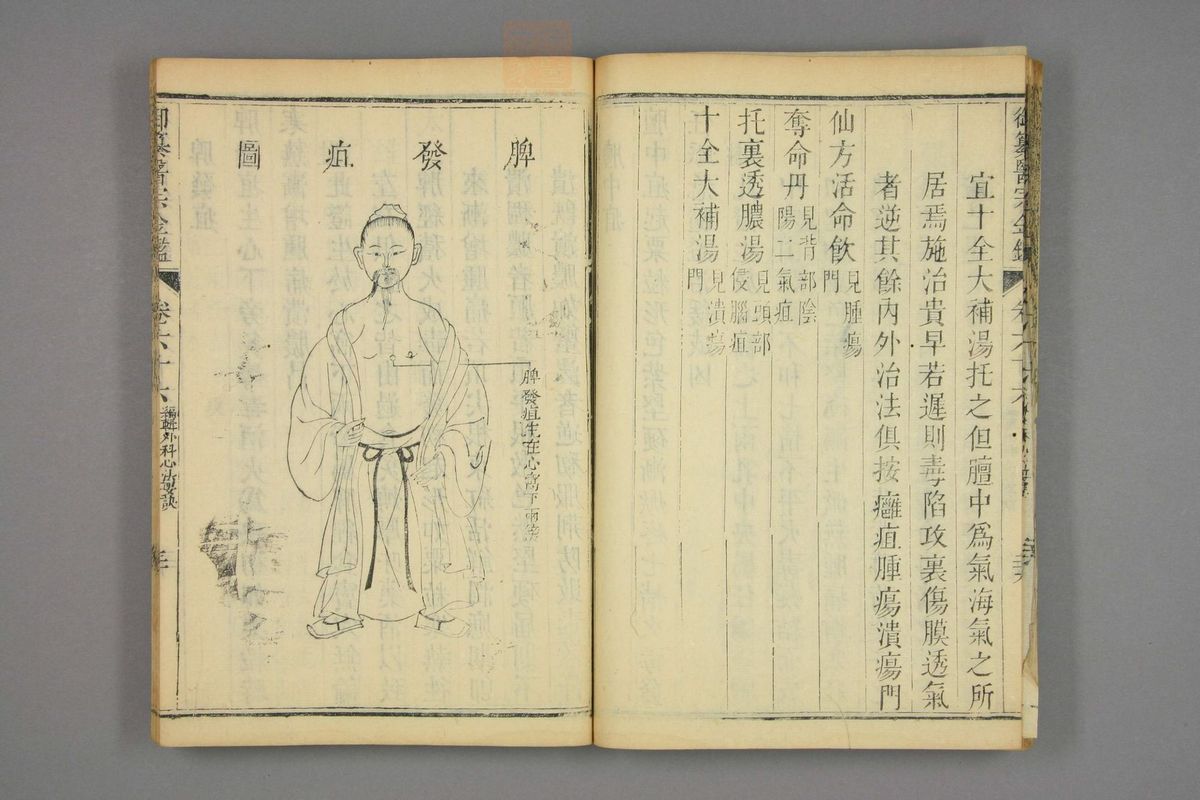 宜十全大補湯托之但膻中爲氣海氣之所
居焉施治貴早若遲則毒陷攻裏傷膜透氣
者逆其餘內外治法俱按癰疽腫瘍潰瘍門
仙方活命飲 見腫瘍門
奪命丹 見背部陰陽二氣疽
托裏透膿湯 見頭部侵腦疽
十全大補湯 見潰瘍門
脾發疽圖
脾發疽生在心窩下兩旁
御纂醫宗金鑑
卷六十六
編輯外科心法要訣
御纂醫宗金鑑